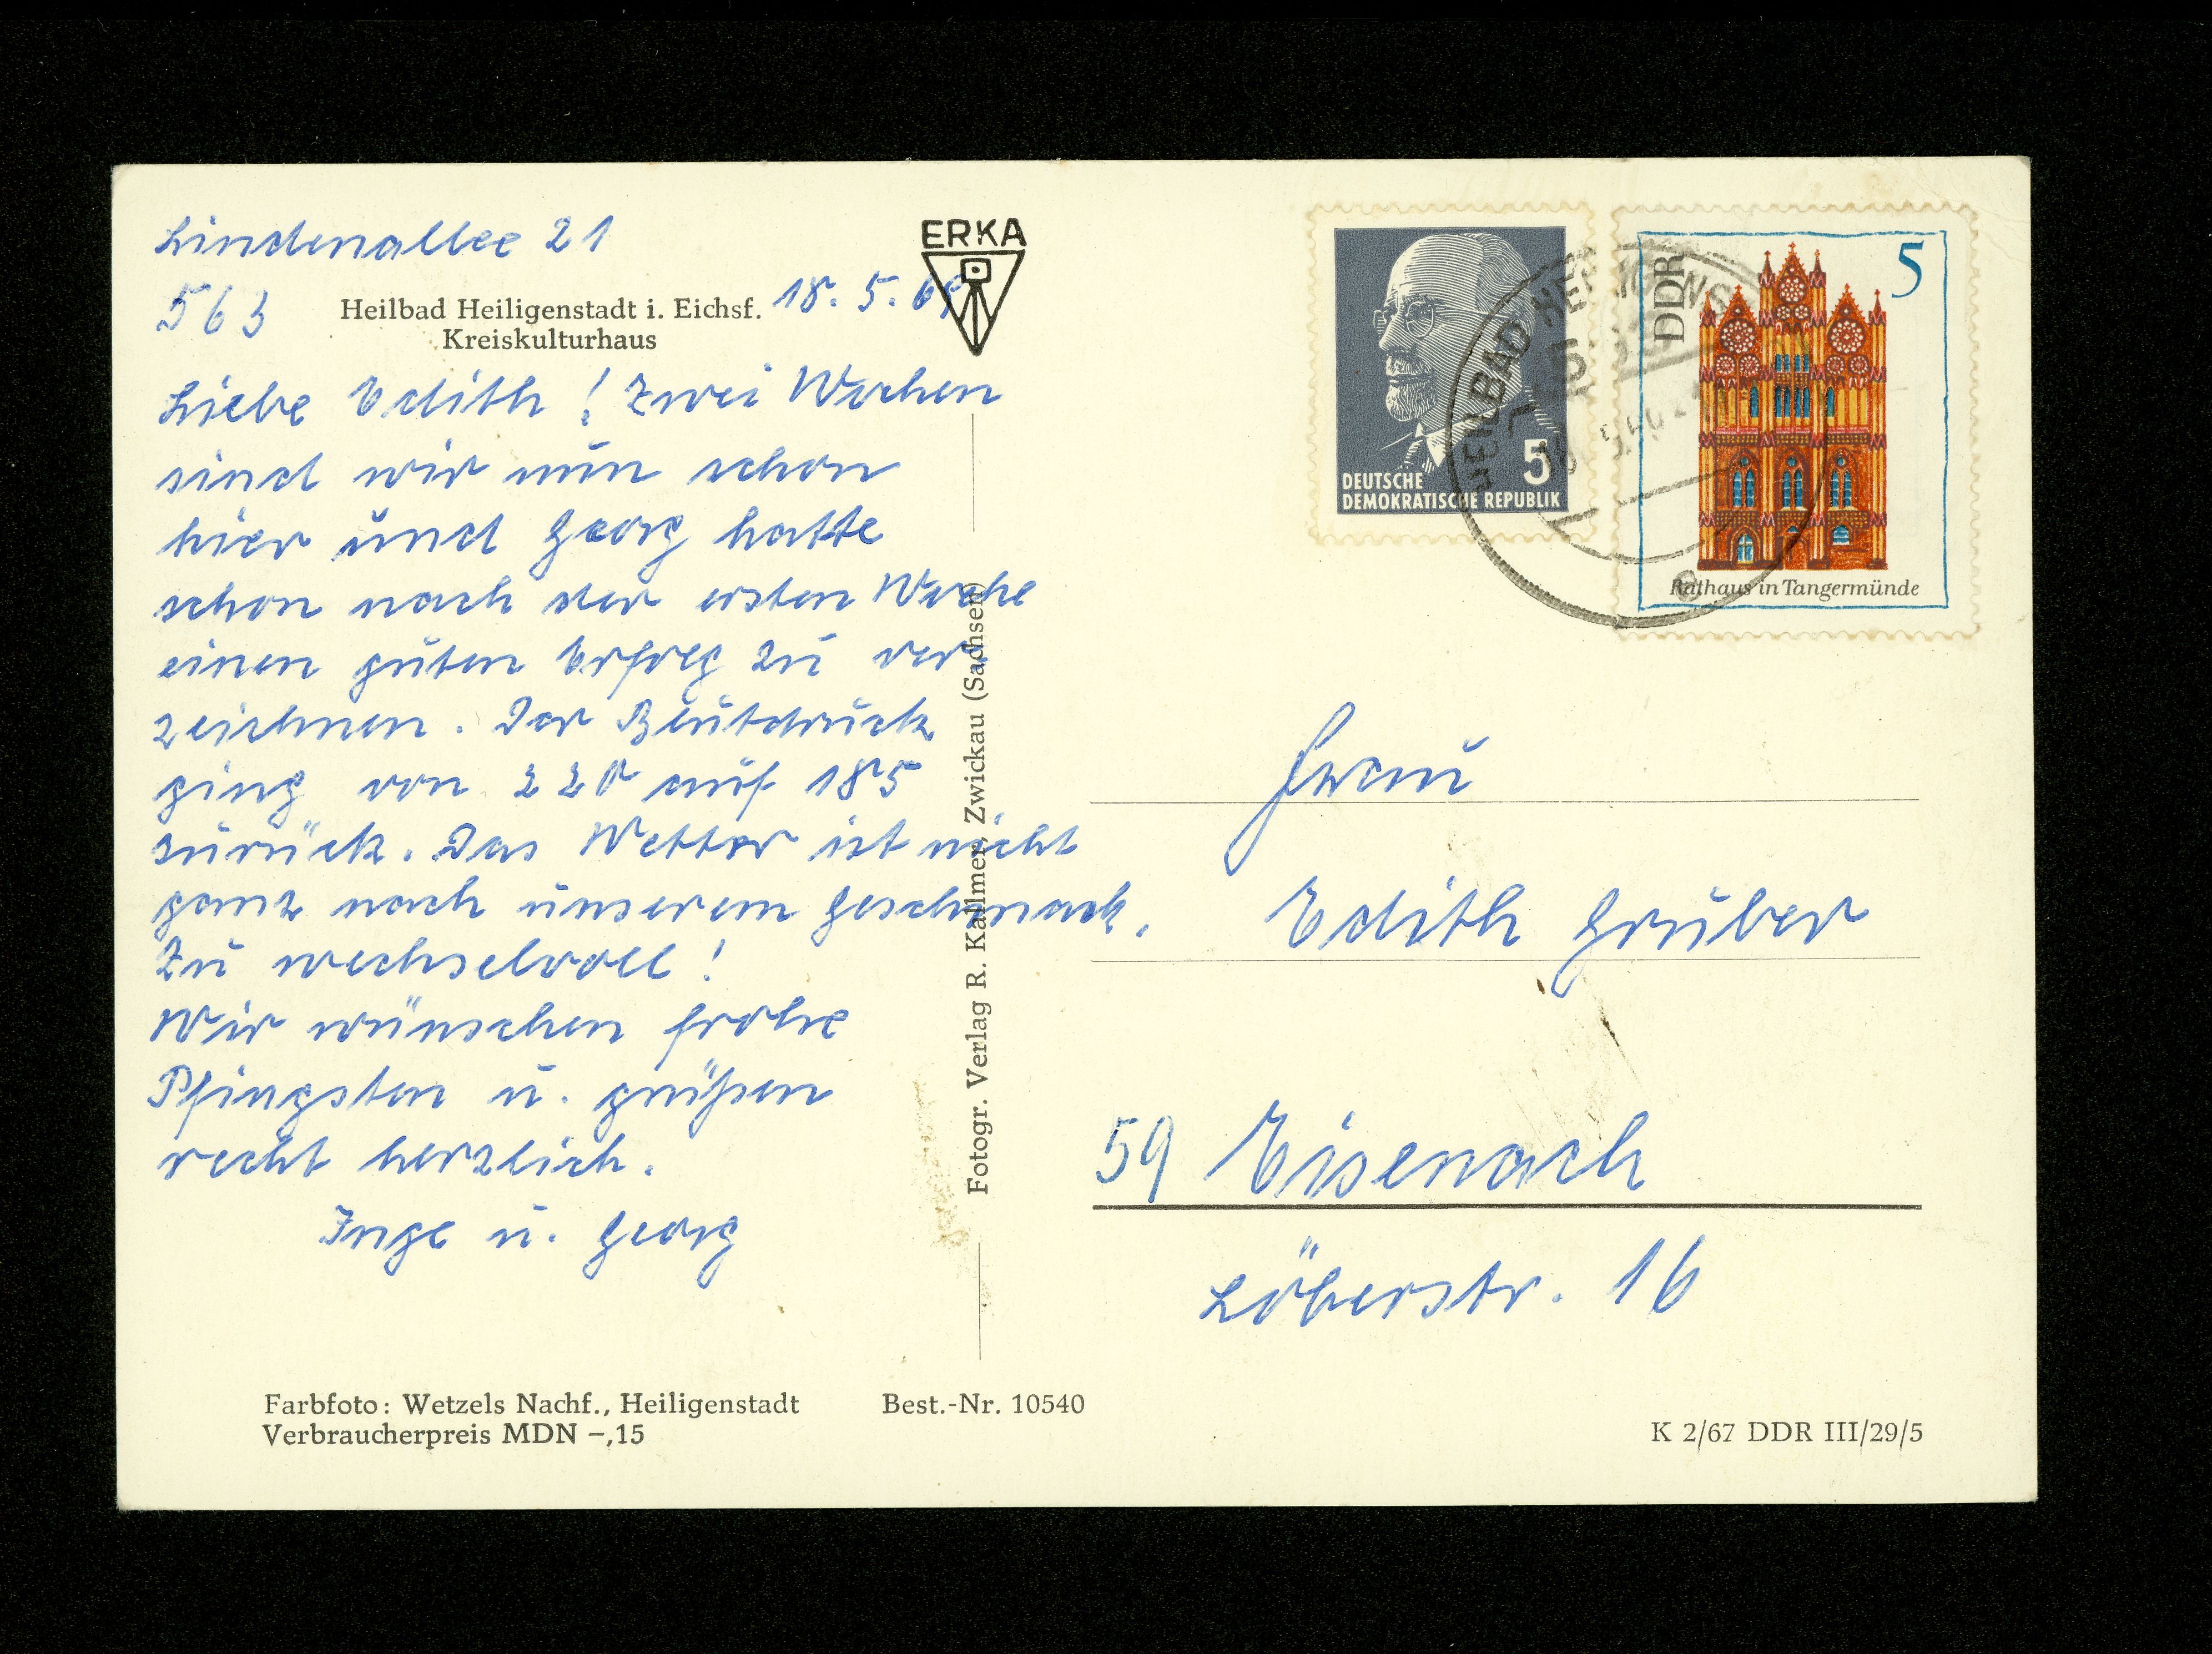 Lindenallee 21
563
Heilbad Heiligenstadt i. Eichsf.
Kreiskulturhaus
18. 5. 69
ERKA
Liebe Edith! Zwei Wochen
sind wir nun schon
hier und Georg hatte
schon nach der ersten Woche
einen guten Erfolg zu ver
zeichnen. Der Blutdruck
ging von 220 auf 185
zurück. Das Wetter ist nicht
ganz nach unserem Geschmack.
Zu wechselvoll!
Wir wünschen frohe
Pfingsten u. grüßen
recht herzlich.
Inge u. Georg
Farbfoto: Wetzels Nachf., Heiligenstadt
Verbraucherpreis MDN –,15
Best.-Nr. 10540
Fotogr. Verlag R. Kallmer, Zwickau (Sachsen)
5
DEUTSCHE
DEMOKRATISCHE REPUBLIK
DDR
5
Rathaus in Tangermünde
HEILBAD
Frau
Edith Gruber
59 Eisenach
Löberstr. 16
K 2/67 DDR III/29/5